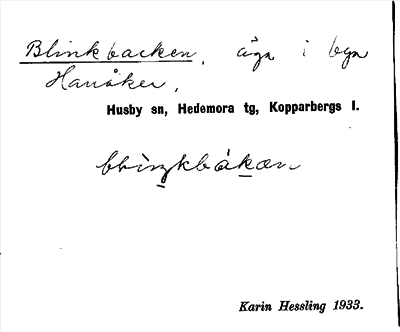 Blinkbacken, äga i byn
Hanåker,
Husby sn, Hedemora tg, Kopparbergs l.
blìŋkbákæn
Karin Hessling 1933.